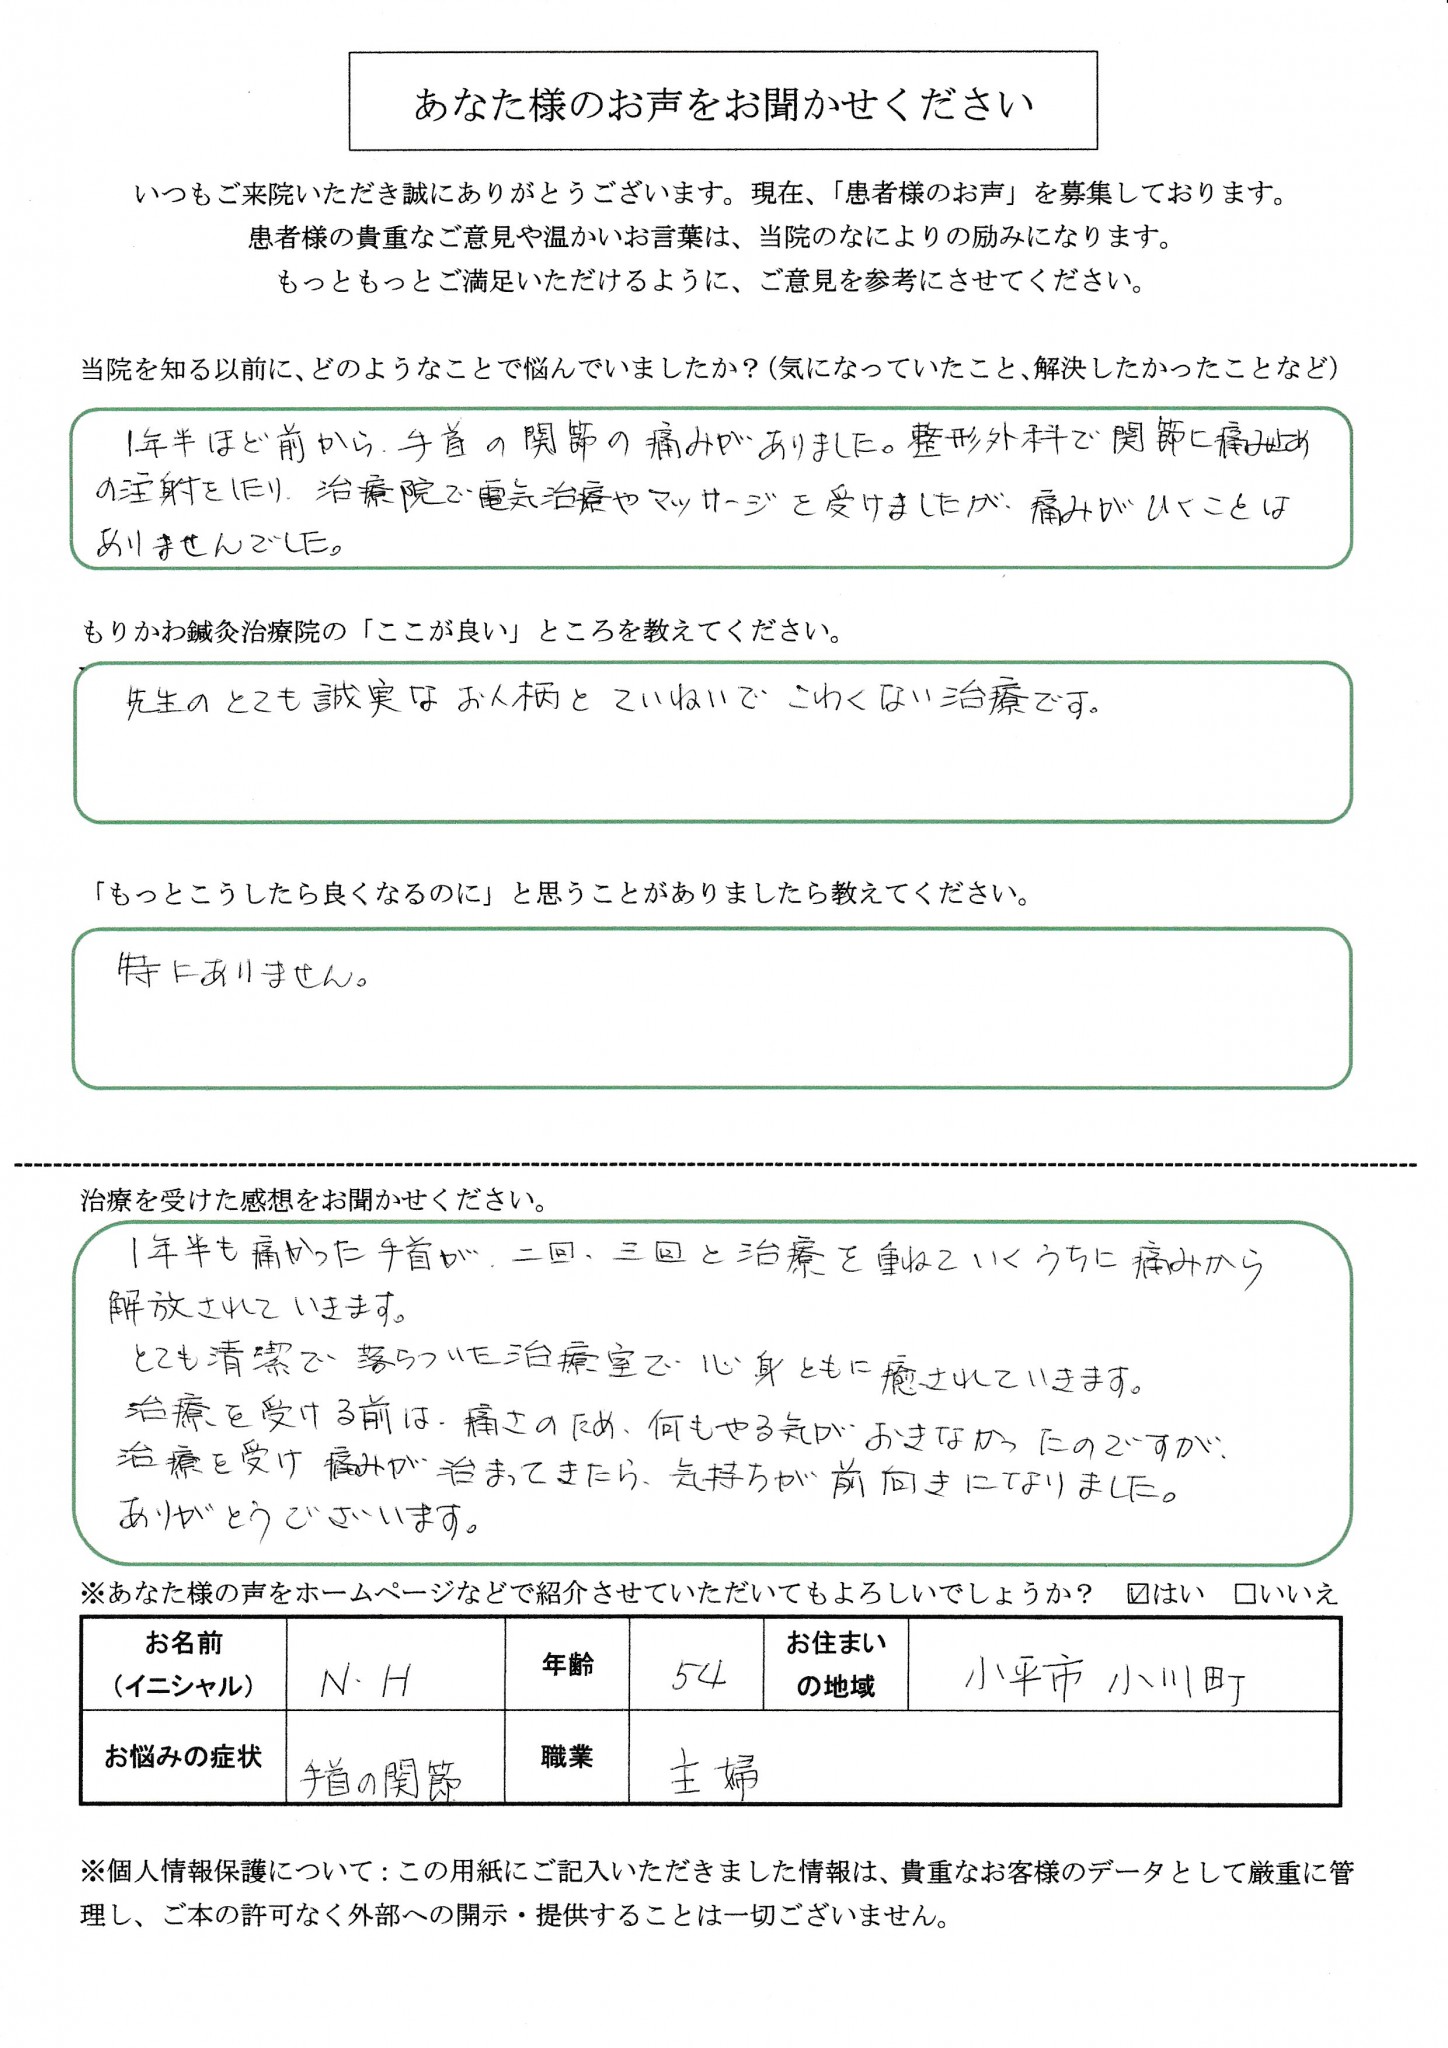 あなた様のお声をお聞かせください
いつもご来院いただき誠にありがとうございます。現在、「患者様のお声」を募集しております。
患者様の貴重なご意見や温かいお言葉は、当院のなによりの励みになります。
もっともっとご満足いただけるように、ご意見を参考にさせてください。
当院を知る以前に、どのようなことで悩んでいましたか？（気になっていたこと、解決したかったことなど）
1年半ほど前から、手首の関節の痛みがありました。整形外科で関節に痛み止め
の注射をしたり、治療院で電気治療やマッサージを受けましたが、痛みがひくことは
ありませんでした。
もりかわ鍼灸治療院の「ここが良い」ところを教えてください。
先生のとても誠実なお人柄とていねいでこわくない治療です。
「もっとこうしたら良くなるのに」と思うことがありましたら教えてください。
特にありません。
治療を受けた感想をお聞かせください。
1年半も痛かった手首が、二回、三回と治療を重ねていくうちに痛みから
解放されていきます。
とても清潔で落ちついた治療室で、心身ともに癒されていきます。
治療を受ける前は、痛さのため、何もやる気がおきなかったのですが、
治療を受け痛みが治まってきたら、気持ちが前向きになりました。
ありがとうございます。
※あなた様の声をホームページなどで紹介させていただいてもよろしいでしょうか？ ☑はい □いいえ
お名前（イニシャル） N.H 年齢 54 お住まいの地域 小平市小川町
お悩みの症状 手首の関節 職業 主婦
※個人情報保護について：この用紙にご記入いただきました情報は、貴重なお客様のデータとして厳重に管
理し、ご本の許可なく外部への開示・提供することは一切ございません。